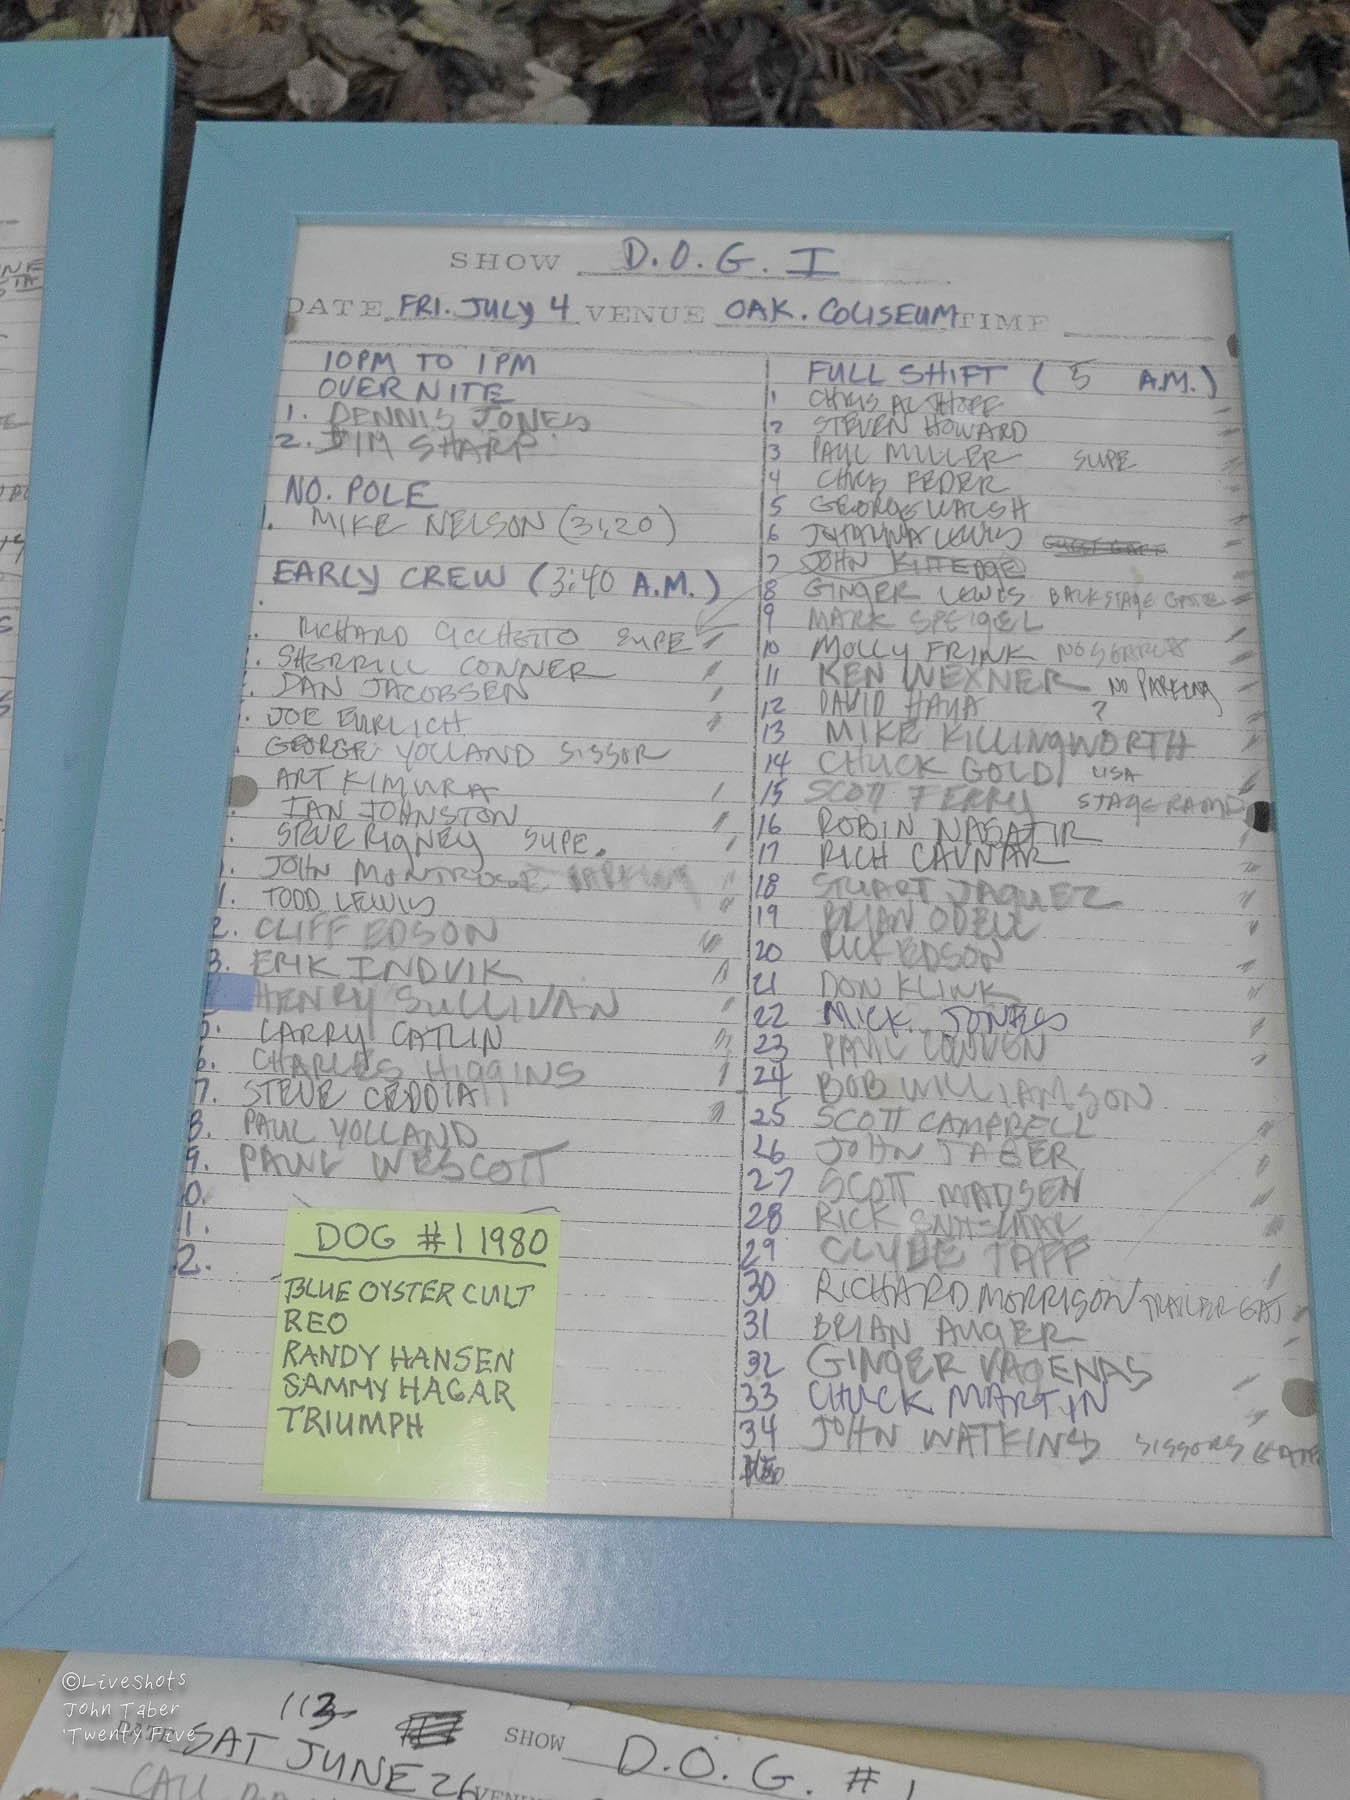 SHOW D.O.G. I
DATE FRI. JULY 4 VENUE OAK. COLISEUM TIME
10PM TO 1PM
OVER NITE
1. DENNIS JONES
2. JIM SHARP
NO. POLE
1. MIKE NELSON (3:20)
EARLY CREW (3:40 A.M.)
RICHARD SUPE
SHERRILL CONNER
DAN JACOBSEN
JOE EHRLICH
GEORGE YOLLAND SISSOR
ART KIMURA
IAN JOHNSTON
STEVE RIGNEY SUPE.
JOHN MONTROSE PARKING
1. TODD LEWIS
2. CLIFF EDSON
3. ERIK INDVIK
HENRY SULLIVAN
5. LARRY CATLIN
6. CHARLES HIGGINS
7. STEVE CEDDIA
8. PAUL YOLLAND
9. PAUL WESCOTT
0.
1.
2.
DOG #1 1980
BLUE OYSTER CULT
REO
RANDY HANSEN
SAMMY HAGAR
TRIUMPH
FULL SHIFT (5 A.M.)
1 CHRIS
2 STEVEN HOWARD
3 PAUL MILLER SUPE
4 CHRIS FEDER
5 GEORGE WALSH
6 JOHANNA LEWIS
7 JOHN KITTEDGE
8 GINGER LEWIS BACKSTAGE GATE
9 MARK SPEIGEL
10 MOLLY FRINK NO SEARCH
11 KEN WEXNER NO PARKING
12 DAVID ?
13 MIKE KILLINGWORTH
14 CHUCK GOLD USA
15 SCOTT FERRY STAGE RAMP
16 ROBIN NAGATIR
17 RICH CAVNAR
18 STUART JAQUEZ
19 BRIAN ODELL
20 RICK EDSON
21 DON KLINK
22 MICK JONES
23 PAUL COWEN
24 BOB WILLIAMSON
25 SCOTT CAMPBELL
26 JOHN TABER
27 SCOTT MADSEN
28 RICK
29 CLYDE TAFF
30 RICHARD MORRISON / TRAILER GAT
31 BRIAN AUGER
32 GINGER VAGENAS
33 CHUCK MARTIN
34 JOHN WATKINS SISSORS GATE
©Liveshots
John Taber
'Twenty Five
113
SAT JUNE 26 SHOW D.O.G. #1